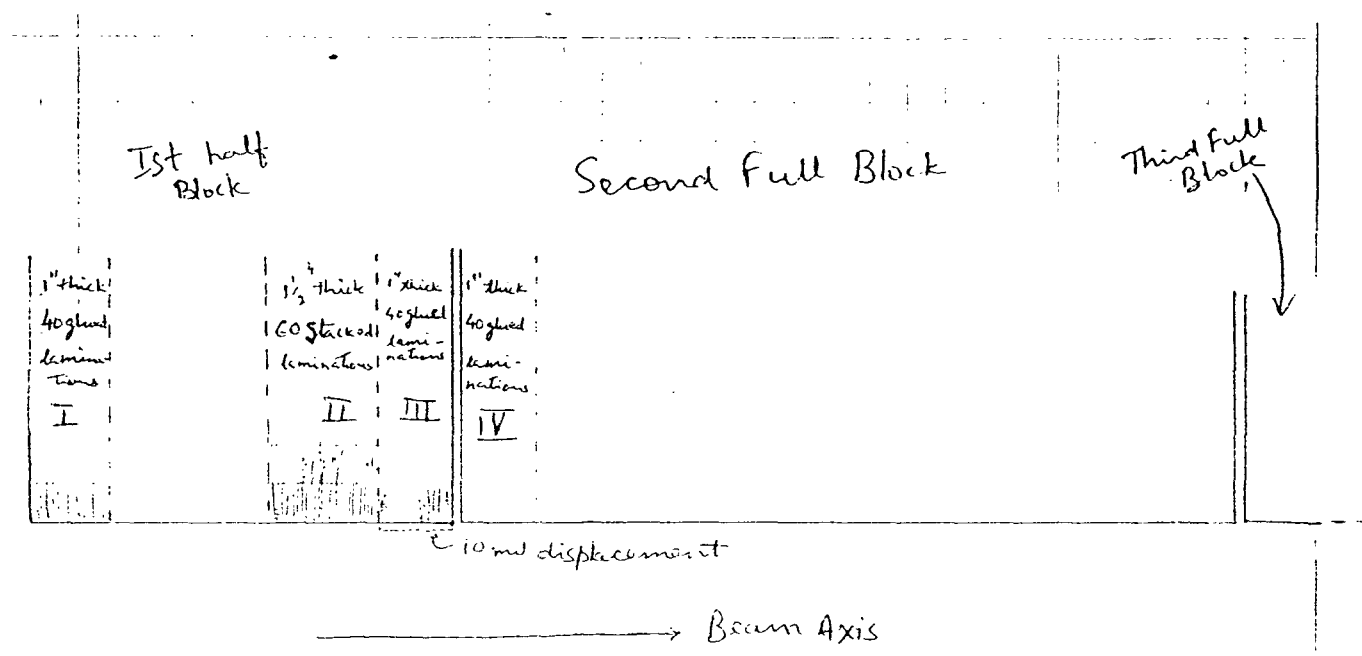 Ist half
Block
Second Full Block
Third Full
Block
1" thick
40 glued
lamina-
tions
I
1½" thick
60 stacked
laminations
II
1" thick
40 glued
lami-
nations
III
1" thick
40 glued
lami-
nations
IV
10 mil displacement
Beam Axis